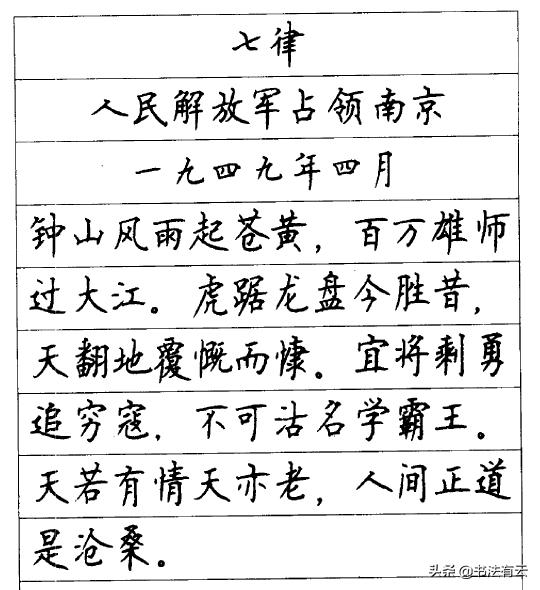 七律
人民解放军占领南京
一九四九年四月
钟山风雨起苍黄，百万雄师
过大江。虎踞龙盘今胜昔，
天翻地覆慨而慷。宜将剩勇
追穷寇，不可沽名学霸王。
天若有情天亦老，人间正道
是沧桑。
头条 @书法有云